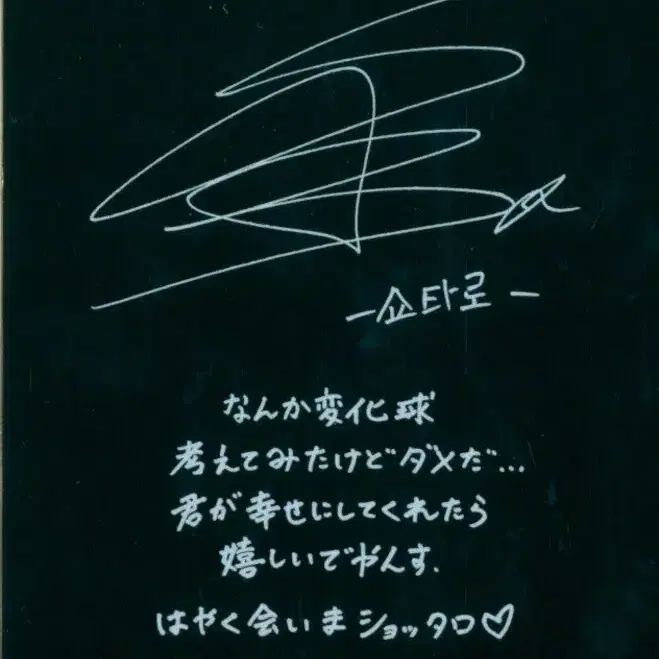 -쇼타로-
なんか変化球
考えてみたけどダメだ...
君が幸せにしてくれたら
嬉しいでやんす.
はやく会いまショッタロ♡